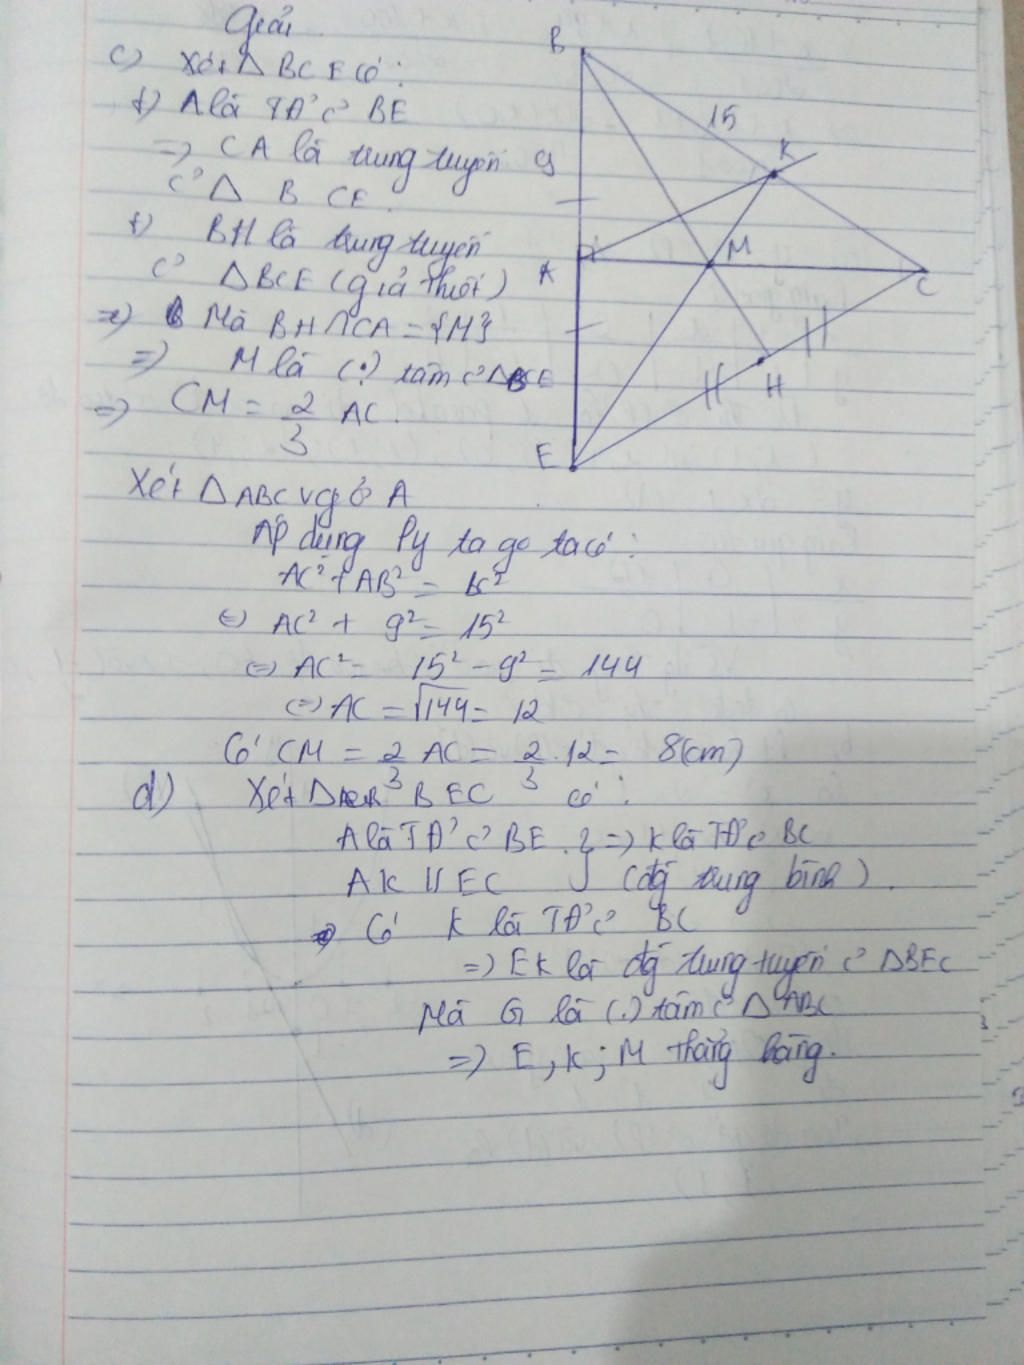 Giải
c) Xét Δ BCE có:
+) A là TĐ' c' BE
=> CA là trung tuyến
c' Δ BCE.
+) BH là trung tuyến
c' ΔBCE (giả thiết)
Mà BH∩CA = {M}
=> M là (.) tâm c' ΔBCE
=> CM = 2/3 AC.
B
15
K
9
A
M
C
H
E
Xét ΔABC vg ở A
Áp dụng Py ta go ta có:
AC² + AB² = BC²
(=) AC² + 9² = 15²
(=) AC² = 15² - 9² = 144
(=) AC = √144 = 12
Có CM = 2/3 AC = 2/3 . 12 = 8(cm)
d) Xét Δ BEC có:
A là TĐ' c' BE } => K là TĐ' c' BC
AK // EC (đg trung bình).
Có K là TĐ' c' BC
=> EK là đg trung tuyến c' ΔBEC
Mà G là (.) tâm c' ΔABC
=> E, K; M thẳng hàng.